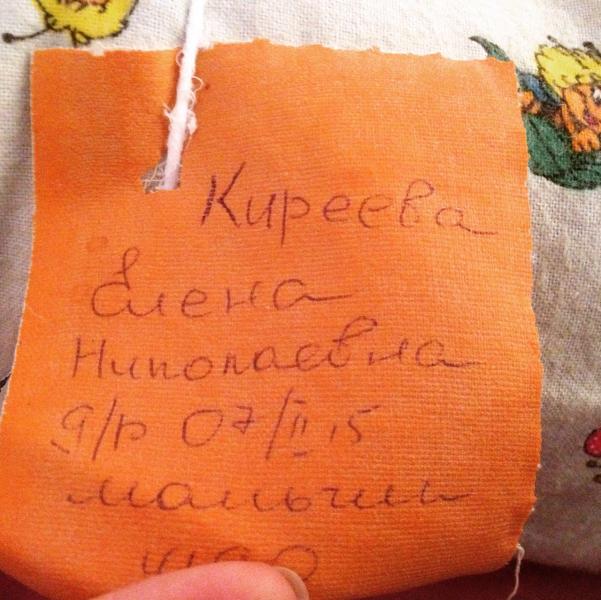 Киреева
Елена
Николаевна
д/р 07/II 15
мальчик